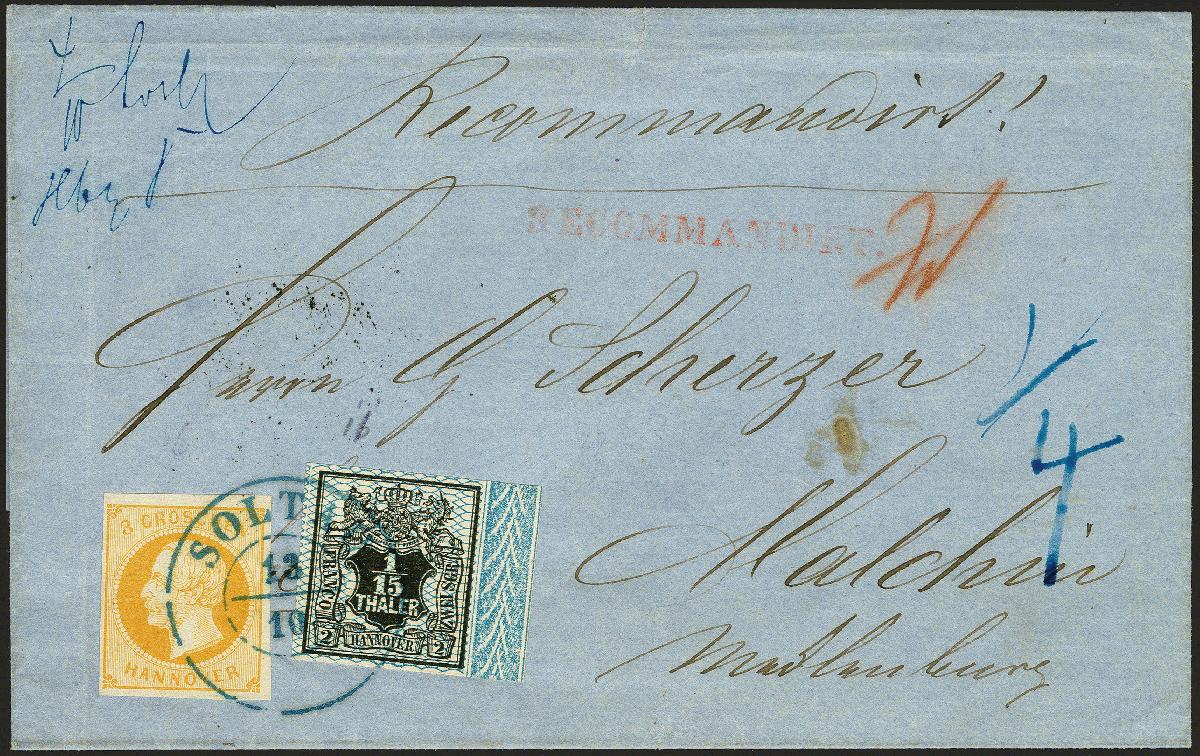 Recommandirt!
RECOMMANDIRT.
Herrn G Scherzer
1/4
16
Malchin
Mecklenburg
3 GROS
HANNOVER
SOLT
10
1
15
THALER
FRANCO
2
HANNOVER
2